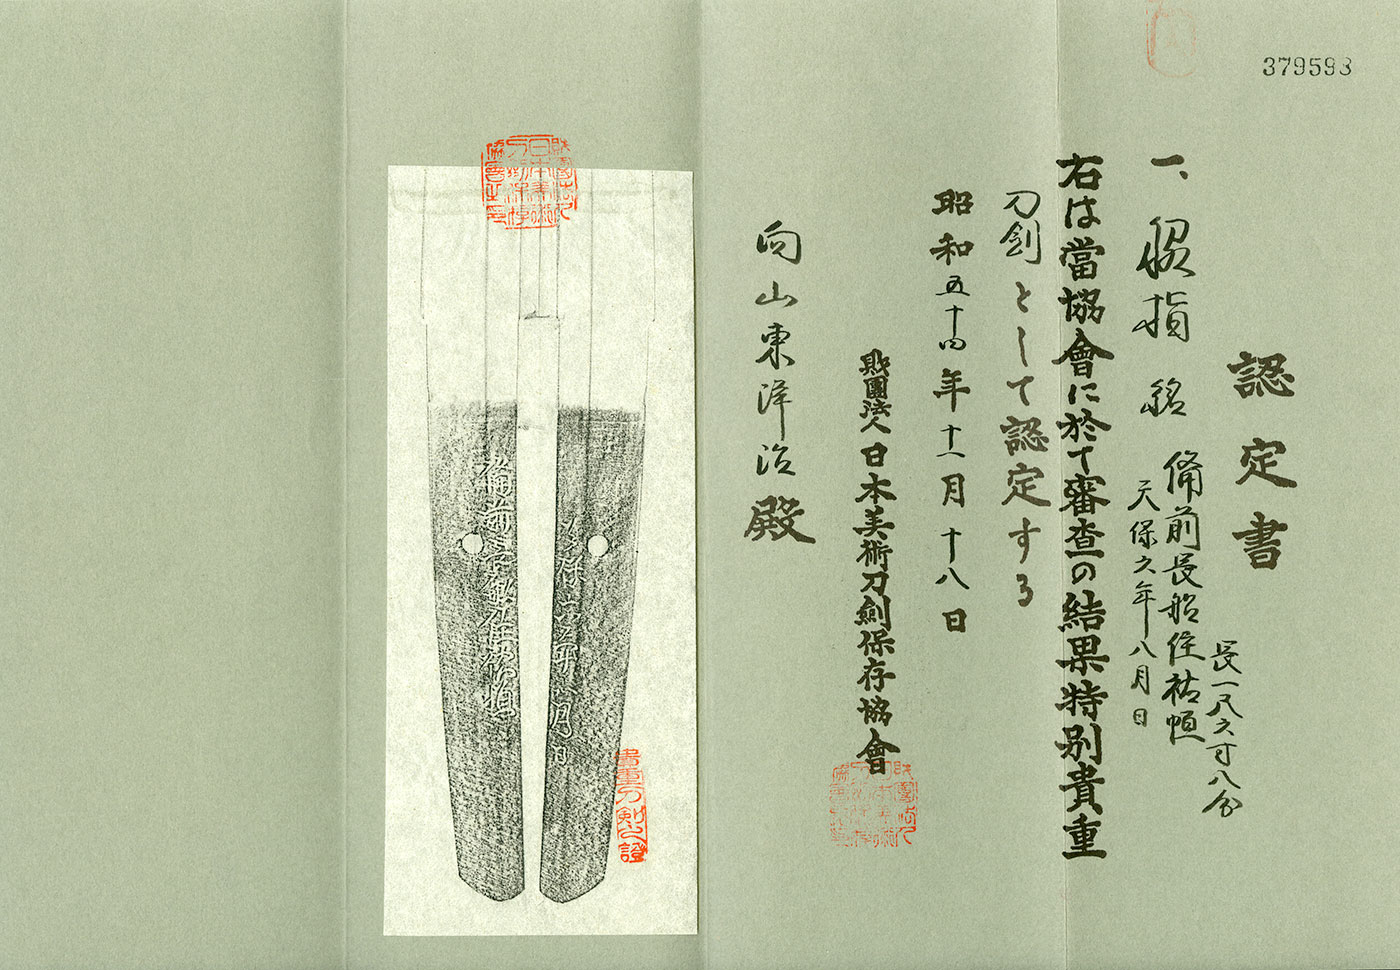 379593
認定書
一、脇指 銘 備前長船住祐恒
天保六年八月日
長一尺六寸八分
右は當協會に於て審査の結果特別貴重
刀剣として認定する
昭和五十四年十一月十八日
財團法人日本美術刀劍保存協會
向山東洋治殿
備前長船住祐恒
天保六年八月日
貴重刀剣之證